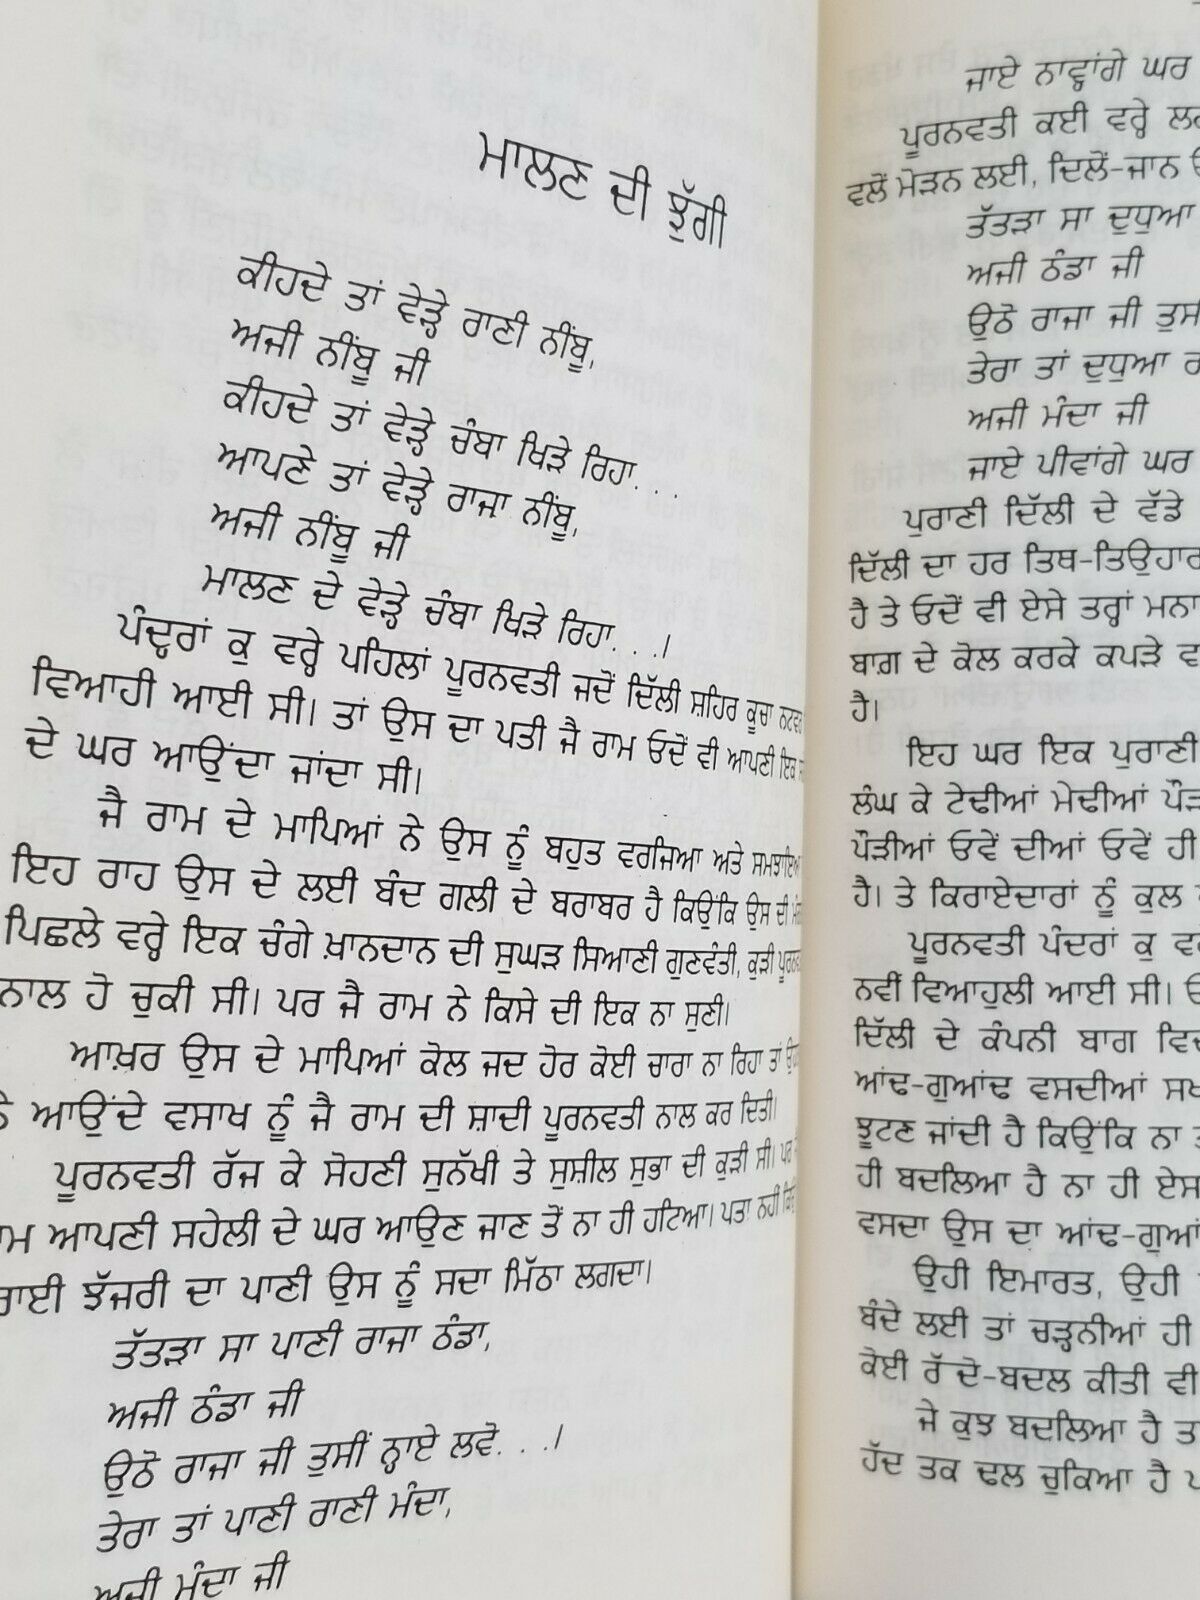 ਮਾਲਣ ਦੀ ਝੁੱਗੀ
ਕੀਹਦੇ ਤਾਂ ਵੇੜ੍ਹੇ ਰਾਣੀ ਨੀਂਬੂ,
ਅਜੀ ਨੀਂਬੂ ਜੀ
ਕੀਹਦੇ ਤਾਂ ਵੇੜ੍ਹੇ ਚੰਬਾ ਖਿੜੇ ਰਿਹਾ. . .
ਆਪਣੇ ਤਾਂ ਵੇੜ੍ਹੇ ਰਾਜਾ ਨੀਂਬੂ,
ਅਜੀ ਨੀਂਬੂ ਜੀ
ਮਾਲਣ ਦੇ ਵੇੜ੍ਹੇ ਚੰਬਾ ਖਿੜੇ ਰਿਹਾ. . .।
ਪੰਦ੍ਹਰਾਂ ਕੁ ਵਰ੍ਹੇ ਪਹਿਲਾਂ ਪੂਰਨਵਤੀ ਜਦੋਂ ਦਿੱਲੀ ਸ਼ਹਿਰ ਕੂਚਾ
ਵਿਆਹੀ ਆਈ ਸੀ। ਤਾਂ ਉਸ ਦਾ ਪਤੀ ਜੈ ਰਾਮ ਓਦੋਂ ਵੀ ਆਪਣੀ ਇਕ
ਦੇ ਘਰ ਆਉਂਦਾ ਜਾਂਦਾ ਸੀ।
ਜੈ ਰਾਮ ਦੇ ਮਾਪਿਆਂ ਨੇ ਉਸ ਨੂੰ ਬਹੁਤ ਵਰਜਿਆ ਅਤੇ ਸਮਝਾਇਆ
ਇਹ ਰਾਹ ਉਸ ਦੇ ਲਈ ਬੰਦ ਗਲੀ ਦੇ ਬਰਾਬਰ ਹੈ ਕਿਉਂਕਿ ਉਸ ਦੀ
ਪਿਛਲੇ ਵਰ੍ਹੇ ਇਕ ਚੰਗੇ ਖ਼ਾਨਦਾਨ ਦੀ ਸੁਘੜ ਸਿਆਣੀ ਗੁਣਵੰਤੀ, ਕੁੜੀ
ਨਾਲ ਹੋ ਚੁਕੀ ਸੀ। ਪਰ ਜੈ ਰਾਮ ਨੇ ਕਿਸੇ ਦੀ ਇਕ ਨਾ ਸੁਣੀ।
ਆਖ਼ਰ ਉਸ ਦੇ ਮਾਪਿਆਂ ਕੋਲ ਜਦ ਹੋਰ ਕੋਈ ਚਾਰਾ ਨਾ ਰਿਹਾ ਤਾਂ
ਆਉਂਦੇ ਵਸਾਖ ਨੂੰ ਜੈ ਰਾਮ ਦੀ ਸ਼ਾਦੀ ਪੂਰਨਵਤੀ ਨਾਲ ਕਰ ਦਿਤੀ।
ਪੂਰਨਵਤੀ ਰੱਜ ਕੇ ਸੋਹਣੀ ਸੁਨੱਖੀ ਤੇ ਸੁਸ਼ੀਲ ਸੁਭਾ ਦੀ ਕੁੜੀ ਸੀ। ਪਰ
ਆਪਣੀ ਸਹੇਲੀ ਦੇ ਘਰ ਆਉਣ ਜਾਣ ਤੋਂ ਨਾ ਹੀ ਹਟਿਆ। ਪਤਾ ਨਹੀਂ
ਝੱਜਰੀ ਦਾ ਪਾਣੀ ਉਸ ਨੂੰ ਸਦਾ ਮਿੱਠਾ ਲਗਦਾ।
ਤੱਤੜਾ ਸਾ ਪਾਣੀ ਰਾਜਾ ਠੰਡਾ,
ਅਜੀ ਠੰਡਾ ਜੀ
ਉਠੋ ਰਾਜਾ ਜੀ ਤੁਸੀਂ ਨ੍ਹਾਏ ਲਵੋ. . .।
ਤੇਰਾ ਤਾਂ ਪਾਣੀ ਰਾਣੀ ਮੰਦਾ,
ਅਜੀ ਮੰਦਾ ਜੀ
ਜਾਏ ਨਾਵ੍ਹਾਂਗੇ ਘਰ
ਪੂਰਨਵਤੀ ਕਈ ਵਰ੍ਹੇ
ਵਲੋਂ ਮੋੜਨ ਲਈ, ਦਿਲੋਂ-ਜਾਨ
ਤੱਤੜਾ ਸਾ ਦੁਧੁਆ
ਅਜੀ ਠੰਡਾ ਜੀ
ਉਠੋ ਰਾਜਾ ਜੀ
ਤੇਰਾ ਤਾਂ ਦੁਧੁਆ
ਅਜੀ ਮੰਦਾ ਜੀ
ਜਾਏ ਪੀਵਾਂਗੇ ਘਰ
ਪੁਰਾਣੀ ਦਿੱਲੀ ਦੇ ਵੱਡੇ
ਦਿੱਲੀ ਦਾ ਹਰ ਤਿਥ-ਤਿਉਹਾਰ
ਹੈ ਤੇ ਓਦੋਂ ਵੀ ਏਸੇ ਤਰ੍ਹਾਂ
ਬਾਗ਼ ਦੇ ਕੋਲ ਕਰਕੇ ਕਪੜੇ
ਹੈ।
ਇਹ ਘਰ ਇਕ ਪੁਰਾਣੀ
ਲੰਘ ਕੇ ਟੇਢੀਆਂ ਮੇਢੀਆਂ
ਪੌੜੀਆਂ ਓਵੇਂ ਦੀਆਂ ਓਵੇਂ ਹੀ
ਹੈ। ਤੇ ਕਿਰਾਏਦਾਰਾਂ ਨੂੰ ਕੁਲ
ਪੂਰਨਵਤੀ ਪੰਦਰਾਂ ਕੁ
ਨਵੀਂ ਵਿਆਹੁਲੀ ਆਈ ਸੀ।
ਦਿੱਲੀ ਦੇ ਕੰਪਨੀ ਬਾਗ
ਆਂਢ-ਗੁਆਂਢ ਵਸਦੀਆਂ
ਝੂਟਣ ਜਾਂਦੀ ਹੈ ਕਿਉਂਕਿ ਨਾ
ਹੀ ਬਦਲਿਆ ਹੈ ਨਾ ਹੀ ਏਸ
ਵਸਦਾ ਉਸ ਦਾ
ਉਹੀ ਇਮਾਰਤ, ਉਹੀ
ਬੰਦੇ ਲਈ ਤਾਂ ਚੜ੍ਹਨੀਆਂ ਹੀ
ਕੋਈ ਰੱਦੋ-ਬਦਲ ਕੀਤੀ ਵੀ
ਜੇ ਕੁਝ ਬਦਲਿਆ ਹੈ
ਹੱਦ ਤਕ ਢਲ ਚੁਕਿਆ ਹੈ